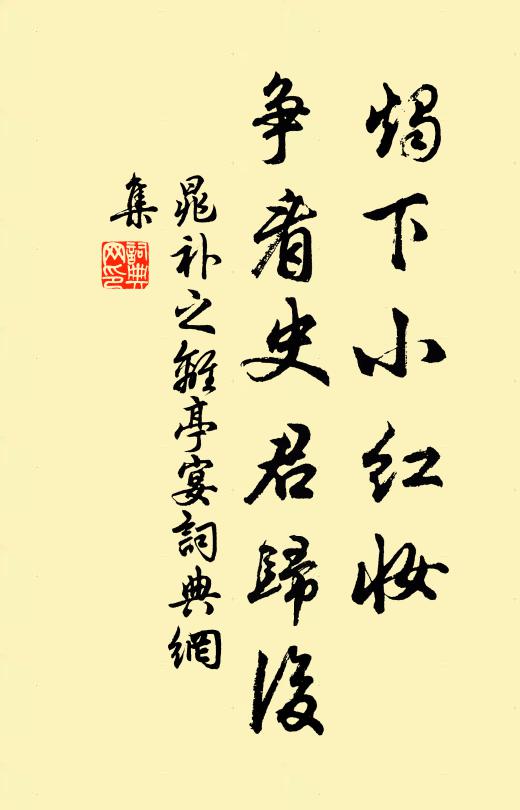 燭下小红妆
争看史君歸後
晁补之離亭宴詞典網
集
詞典网印